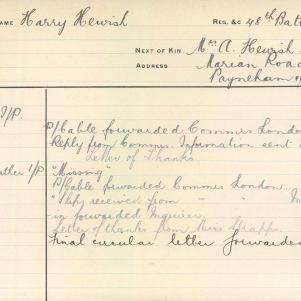 NAME Harry Hewish REG. &C 48th Batt
NEXT OF KIN Mrs A. Hewish
ADDRESS Marian Road
Payneham
I/P.
P/Cable forwarded Commrs London
Reply from Commr. Information sent
Letter of Thanks
I/P "Missing"
P/Cable forwarded Commrs London.
" Reply received from " "
in forwarded Inquirer
Letter of thanks from Miss
Final circular letter forwarded